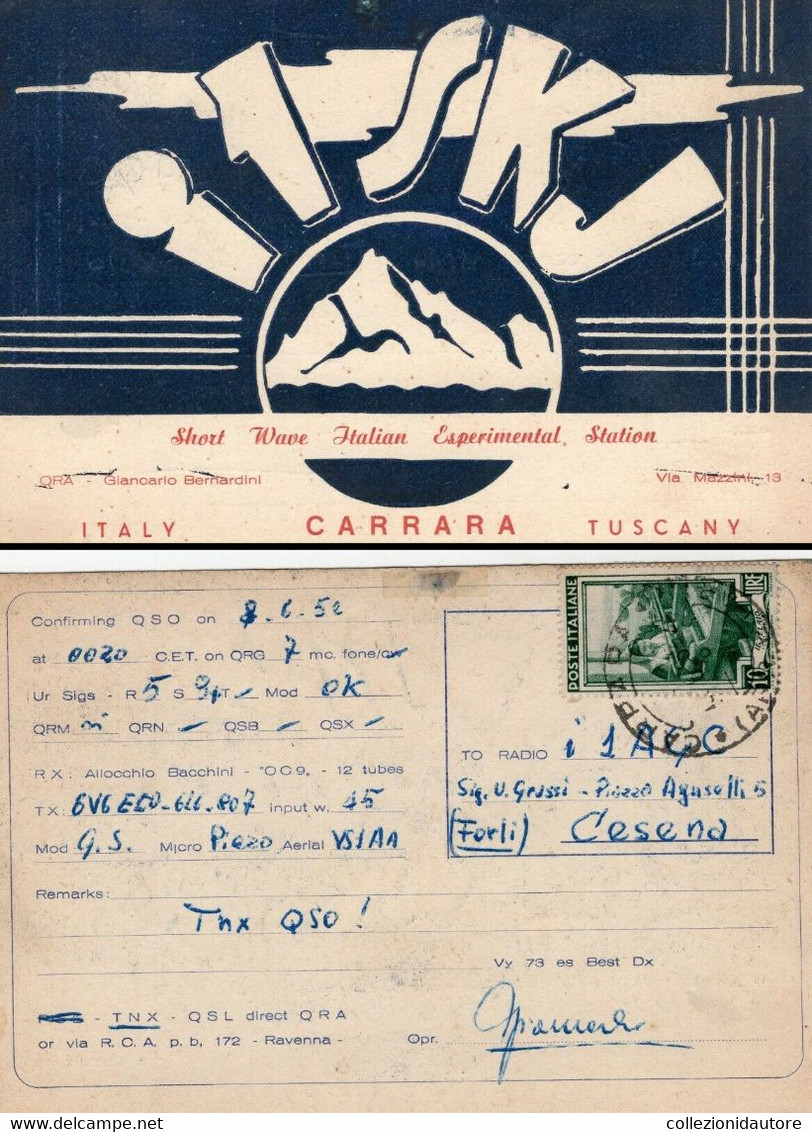 i1SKJ
Short Wave Italian Esperimental Station
QRA - Giancarlo Bernardini
Via Mazzini, 13
ITALY CARRARA TUSCANY
Confirming QSO on 8.6.52
at 0020 C.E.T. on QRG 7 mc. fone/cw
Ur Sigs - R 5 S 9+ T - Mod OK
QRM QRN - QSB - QSX -
RX: Allocchio Bacchini - "OC9" - 12 tubes
TX: 6V6 ECO-6L6-807 input w. 45
Mod G.S. Micro Piezo Aerial VS1AA
Remarks:
Tnx QSO!
POSTE ITALIANE
LIRE
10
TO RADIO i1AGC
Sig. U. Grassi - Piazza Aguselli 5
(Forlì) Cesena
Vy 73 es Best Dx
- TNX - QSL direct QRA
or via R.C.A. p.b, 172 - Ravenna -
Opr.
delcampe.net
collezionidautore